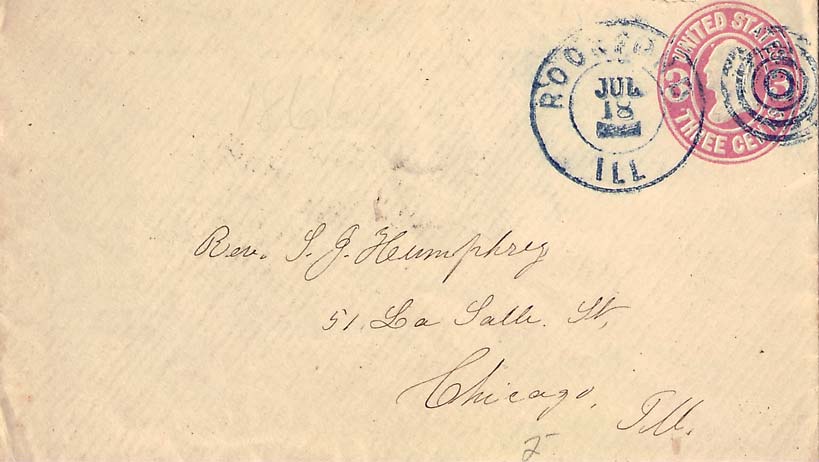 UNITED STATES
3
THREE CENTS
ROCKFORD
JUL
18
ILL
Rev. S. J. Humphrey
51. La Salle. St,
Chicago, Ill.